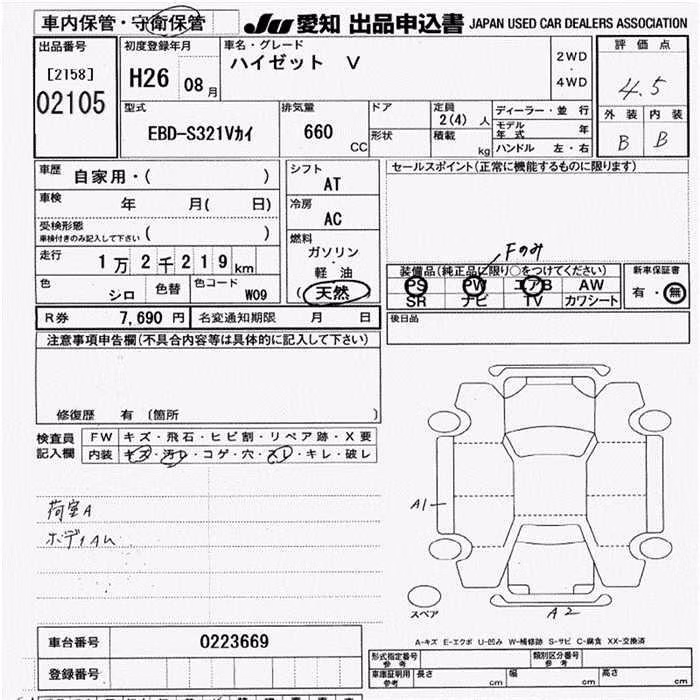 車内保管・守衛保管
JU 愛知 出品申込書 JAPAN USED CAR DEALERS ASSOCIATION
出品番号
[2158]
02105
初度登録年月
H26 08月
車名・グレード
ハイゼット V
2WD
・
4WD
評価点
4.5
外装 内装
B B
型式
EBD-S321Vカイ
排気量
660
CC
ドア
形状
定員
2(4) 人
積載
kg
ディーラー・並 行
モデル年式 年
ハンドル 左・右
車歴
自家用・( )
車検
年 月( 日)
受検形態
車検付きのみ記入して下さい ( )
走行
1万2千219km
色
シロ
色替
色コード
W09
シフト
AT
冷房
AC
燃料
ガソリン
・
軽 油
(天然)
セールスポイント(正常に機能するものに限ります)
Fのみ
装備品(純正品に限り○をつけてください)
PS PW エアB AW
SR ナビ TV カワシート
新車保証書
有・無
後日品
R券 7,690 円
名変通知期限 月 日
注意事項申告欄(不具合内容等は具体的に記入して下さい)
修復歴 有 〔箇所 〕
検査員
記入欄
FW キズ・飛石・ヒビ割・リペア跡・X要
内装 キズ・汚れ・コゲ・穴・スレ・キレ・破レ
荷室A
ボディAム
A1
スペア
A2
A-キズ E-エクボ U-凹み W-補修跡 S-サビ C-腐食 XX-交換済
車台番号 0223669
登録番号
形式指定番号
参考
類別区分番号
参考
車庫証明用
参考
長さ cm 幅 cm 高さ cm